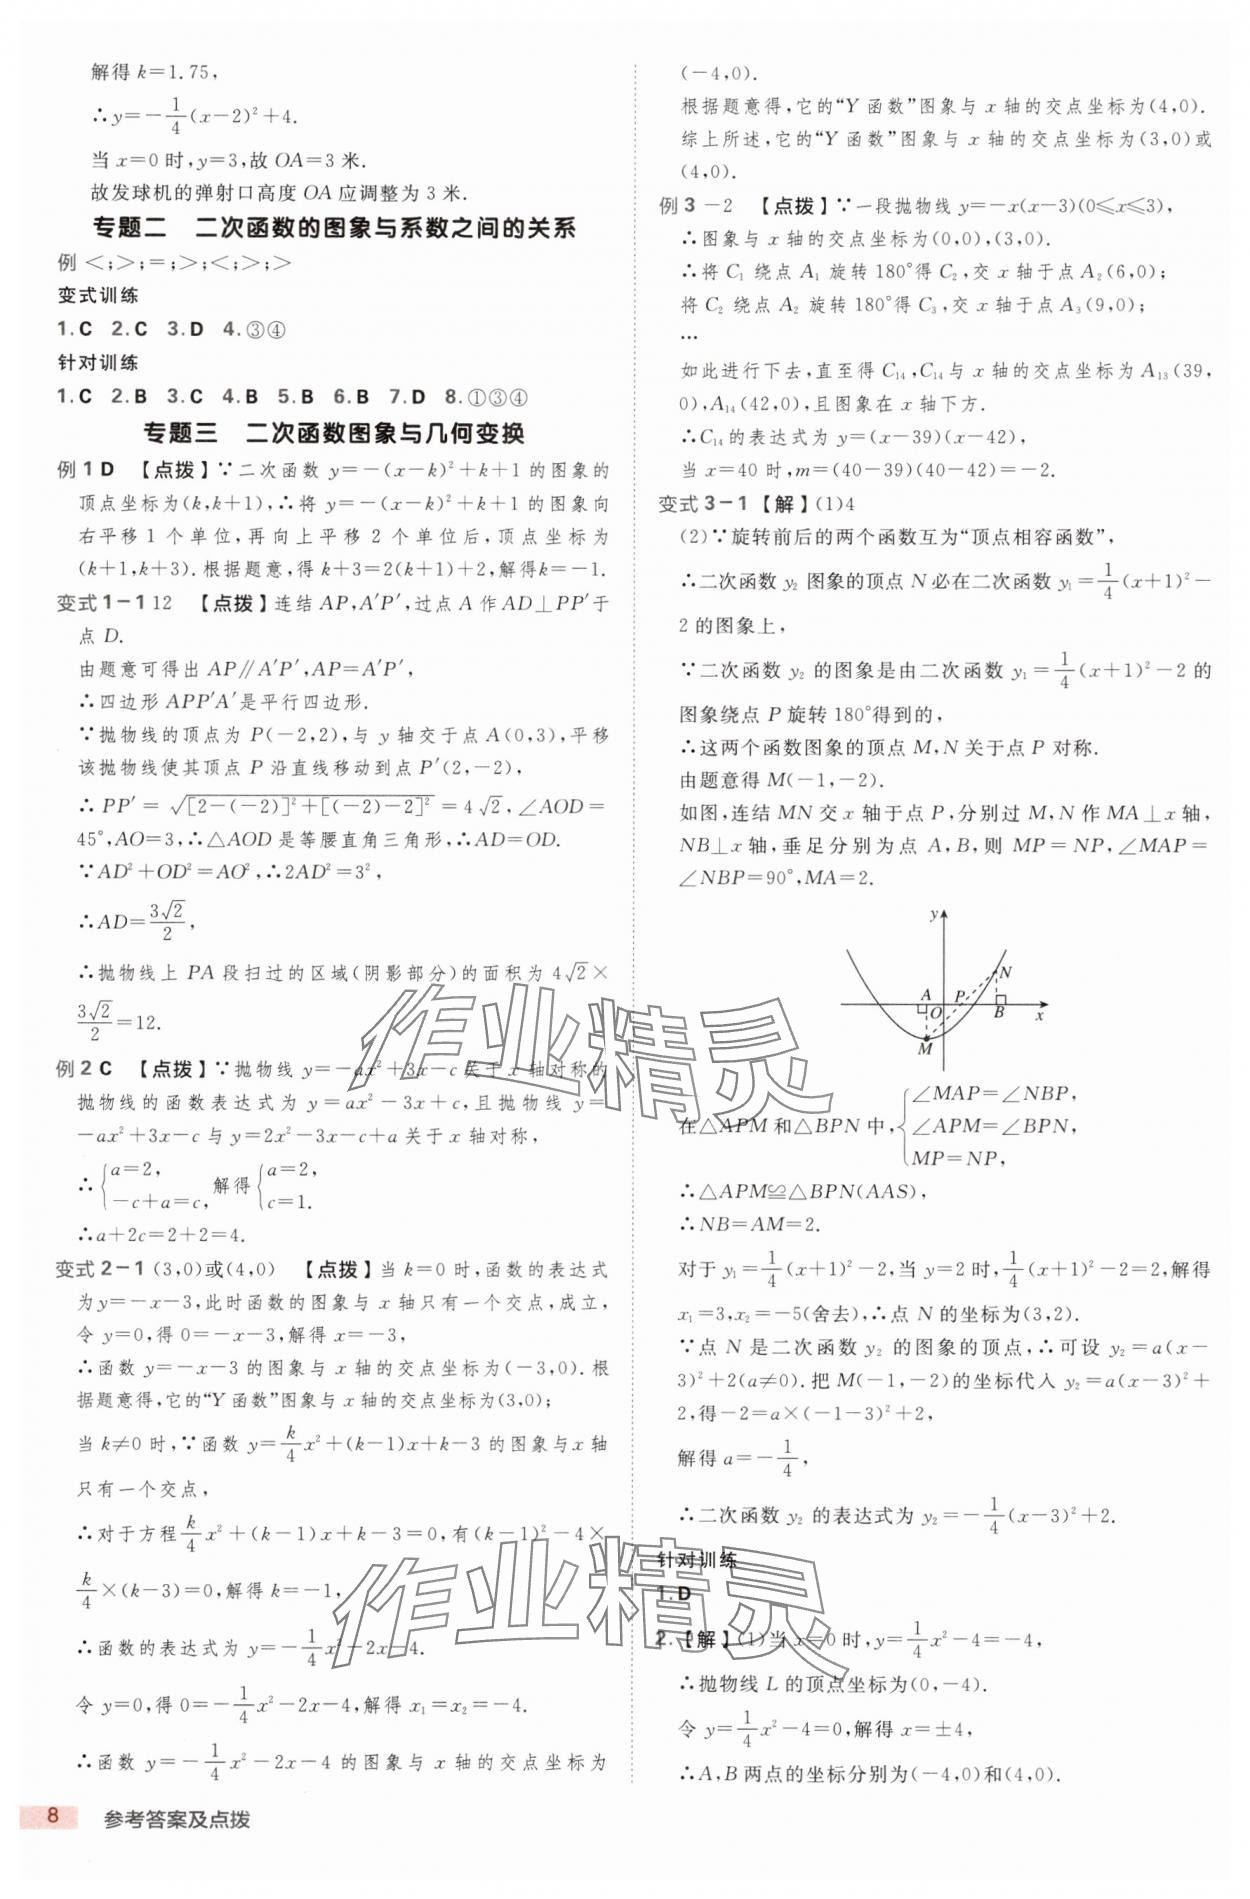 解得 k=1.75,
∴y=-1/4(x-2)²+4.
当 x=0 时,y=3,故 OA=3 米.
故发球机的弹射口高度 OA 应调整为 3 米.
专题二 二次函数的图象与系数之间的关系
例 <;>;=;>;<;>;>
变式训练
1.C 2.C 3.D 4.③④
针对训练
1.C 2.B 3.C 4.B 5.B 6.B 7.D 8.①③④
专题三 二次函数图象与几何变换
例 1 D 【点拨】∵二次函数 y=-(x-k)²+k+1 的图象的
顶点坐标为(k,k+1),∴将 y=-(x-k)²+k+1 的图象向
右平移 1 个单位,再向上平移 2 个单位后,顶点坐标为
(k+1,k+3).根据题意,得 k+3=2(k+1)+2,解得k=-1.
变式1-1 12 【点拨】连结 AP,A′P′,过点 A 作 AD⊥PP′于
点 D.
由题意可得出 AP∥A′P′,AP=A′P′,
∴四边形 APP′A′是平行四边形.
∵抛物线的顶点为 P(-2,2),与 y 轴交于点 A(0,3),平移
该抛物线使其顶点 P 沿直线移动到点 P′(2,-2),
∴PP′=√[2-(-2)]²+[(-2)-2]²=4√2,∠AOD=
45°,AO=3,∴△AOD 是等腰直角三角形,∴AD=OD.
∵AD²+OD²=AO²,∴2AD²=3²,
∴AD=3√2/2,
∴抛物线上 PA 段扫过的区域(阴影部分)的面积为 4√2×
3√2/2=12.
例 2 C 【点拨】∵抛物线 y=-ax²+3x-c 关于 x 轴对称的
抛物线的函数表达式为 y=ax²-3x+c,且抛物线 y=
-ax²+3x-c 与 y=2x²-3x-c+a 关于 x 轴对称,
∴{a=2, -c+a=c, 解得{a=2, c=1.
∴a+2c=2+2=4.
变式2-1 (3,0)或(4,0) 【点拨】当 k=0 时,函数的表达式
为y=-x-3,此时函数的图象与 x 轴只有一个交点,成立,
令 y=0,得 0=-x-3,解得 x=-3,
∴函数 y=-x-3 的图象与 x 轴的交点坐标为(-3,0).根
据题意得,它的“Y 函数”图象与 x 轴的交点坐标为(3,0);
当 k≠0 时,∵函数 y=k/4x²+(k-1)x+k-3 的图象与x 轴
只有一个交点,
∴对于方程k/4x²+(k-1)x+k-3=0,有(k-1)²-4×
k/4×(k-3)=0,解得 k=-1,
∴函数的表达式为 y=-1/4x²-2x-4.
令 y=0,得 0=-1/4x²-2x-4,解得 x₁=x₂=-4.
∴函数 y=-1/4x²-2x-4 的图象与 x 轴的交点坐标为
8 参考答案及点拨
(-4,0).
根据题意得,它的“Y 函数”图象与 x 轴的交点坐标为(4,0).
综上所述,它的“Y 函数”图象与 x 轴的交点坐标为(3,0)或
(4,0).
例 3-2 【点拨】∵一段抛物线 y=-x(x-3)(0≤x≤3),
∴图象与 x 轴的交点坐标为(0,0),(3,0).
∴将 C₁ 绕点 A₁ 旋转 180°得 C₂,交 x 轴于点 A₂(6,0);
将 C₂ 绕点 A₂ 旋转 180°得 C₃,交 x 轴于点 A₃(9,0);
…
如此进行下去,直至得 C₁₄,C₁₄与 x 轴的交点坐标为A₁₃(39,
0),A₁₄(42,0),且图象在 x 轴下方.
∴C₁₄的表达式为 y=(x-39)(x-42),
当 x=40 时,m=(40-39)(40-42)=-2.
变式 3-1【解】(1)4
(2)∵旋转前后的两个函数互为“顶点相容函数”,
∴二次函数 y₂ 图象的顶点 N 必在二次函数 y₁=1/4(x+1)²-
2 的图象上,
∵二次函数 y₂ 的图象是由二次函数 y₁=1/4(x+1)²-2 的
图象绕点 P 旋转 180°得到的,
∴这两个函数图象的顶点 M,N 关于点 P 对称.
由题意得 M(-1,-2).
如图,连结 MN 交 x 轴于点 P,分别过 M,N 作 MA⊥x 轴,
NB⊥x 轴,垂足分别为点 A,B,则 MP=NP,∠MAP=
∠NBP=90°,MA=2.
y
N
A
P
O
B
x
M
在△APM 和△BPN 中,{∠MAP=∠NBP,
∠APM=∠BPN,
MP=NP,
∴△APM≌△BPN(AAS),
∴NB=AM=2.
对于 y₁=1/4(x+1)²-2,当 y=2 时,1/4(x+1)²-2=2,解得
x₁=3,x₂=-5(舍去),∴点 N 的坐标为(3,2).
∵点 N 是二次函数 y₂ 的图象的顶点,∴可设 y₂=a(x-
3)²+2(a≠0).把 M(-1,-2)的坐标代入 y₂=a(x-3)²+
2,得-2=a×(-1-3)²+2,
解得 a=-1/4,
∴二次函数 y₂ 的表达式为 y₂=-1/4(x-3)²+2.
针对训练
1.D
2.【解】(1)当 x=0 时,y=1/4x²-4=-4,
∴抛物线 L 的顶点坐标为(0,-4).
令 y=1/4x²-4=0,解得 x=±4,
∴A,B 两点的坐标分别为(-4,0)和(4,0).
作业精灵
作业精灵